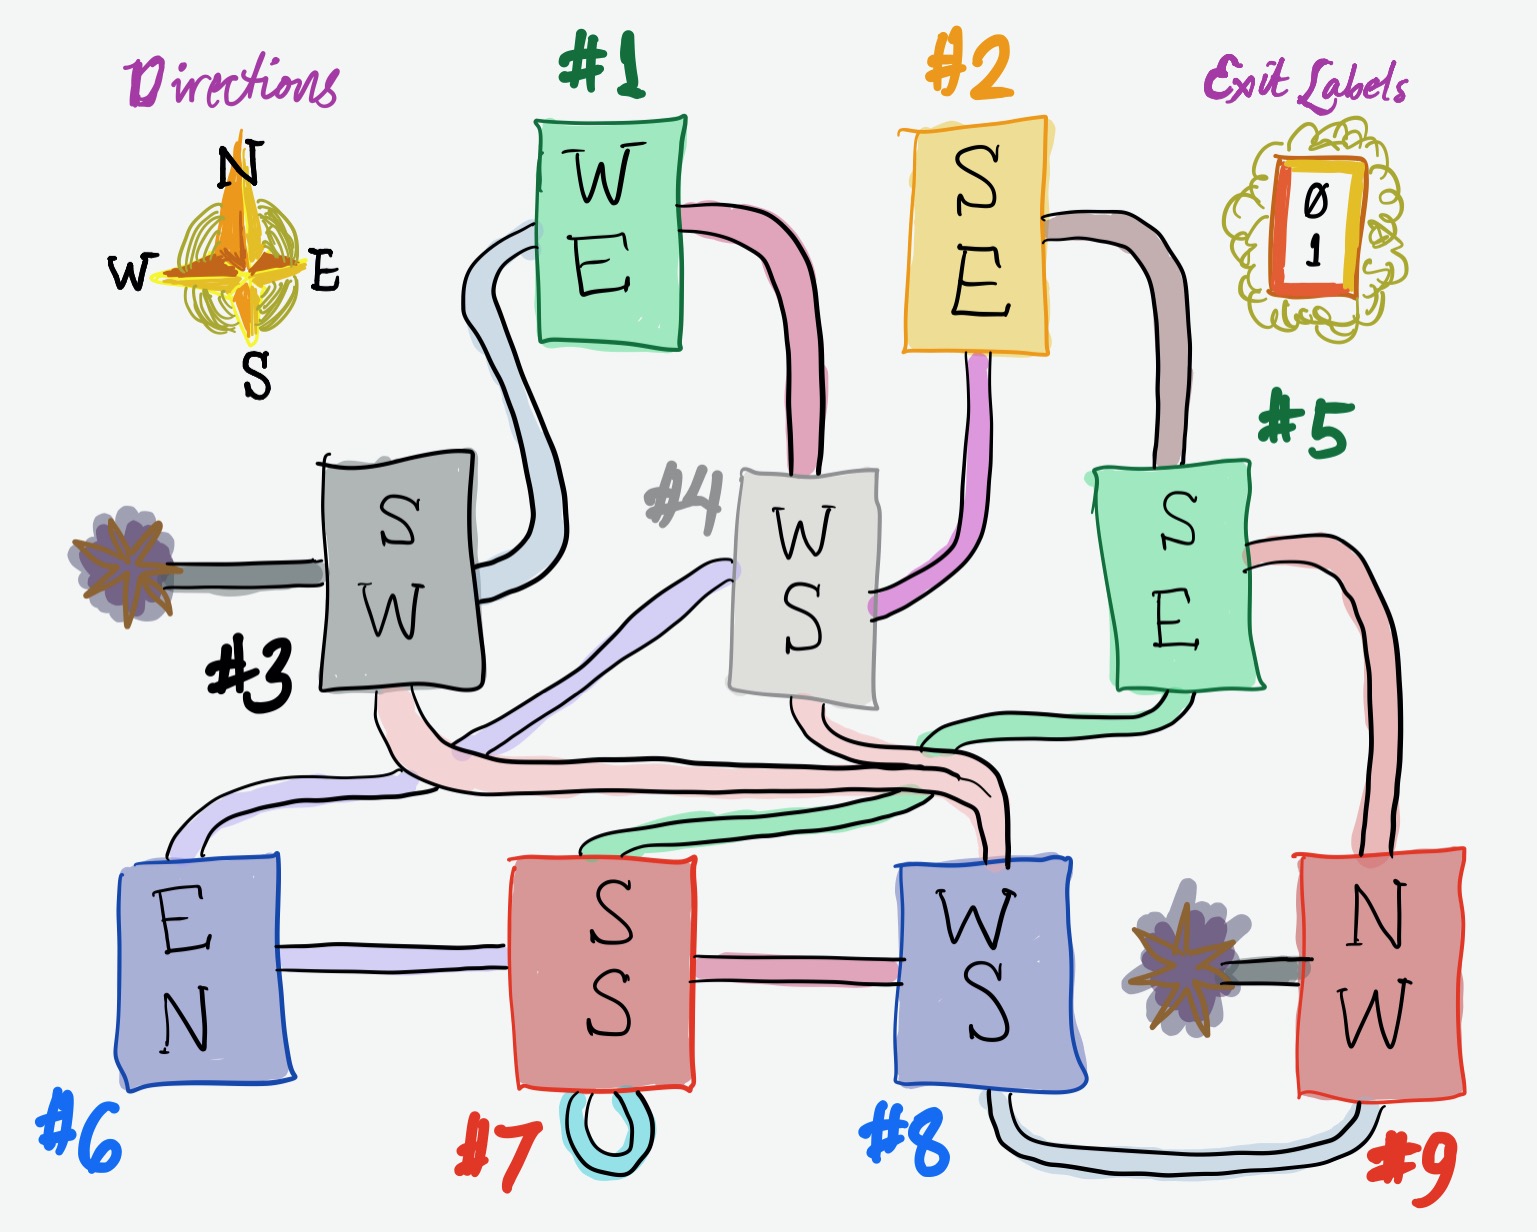 Directions
N
W E
S
#1
W
E
#2
S
E
Exit Labels
0
1
#3
S
W
#4
W
S
#5
S
E
#6
E
N
#7
S
S
#8
W
S
#9
N
W